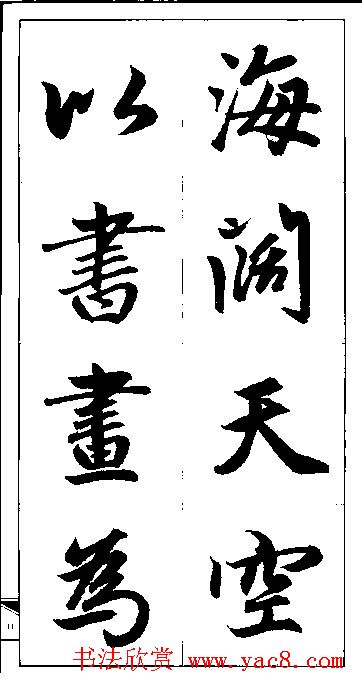 海闊天空
以書畫為
11
书法欣赏 www.yac8.com